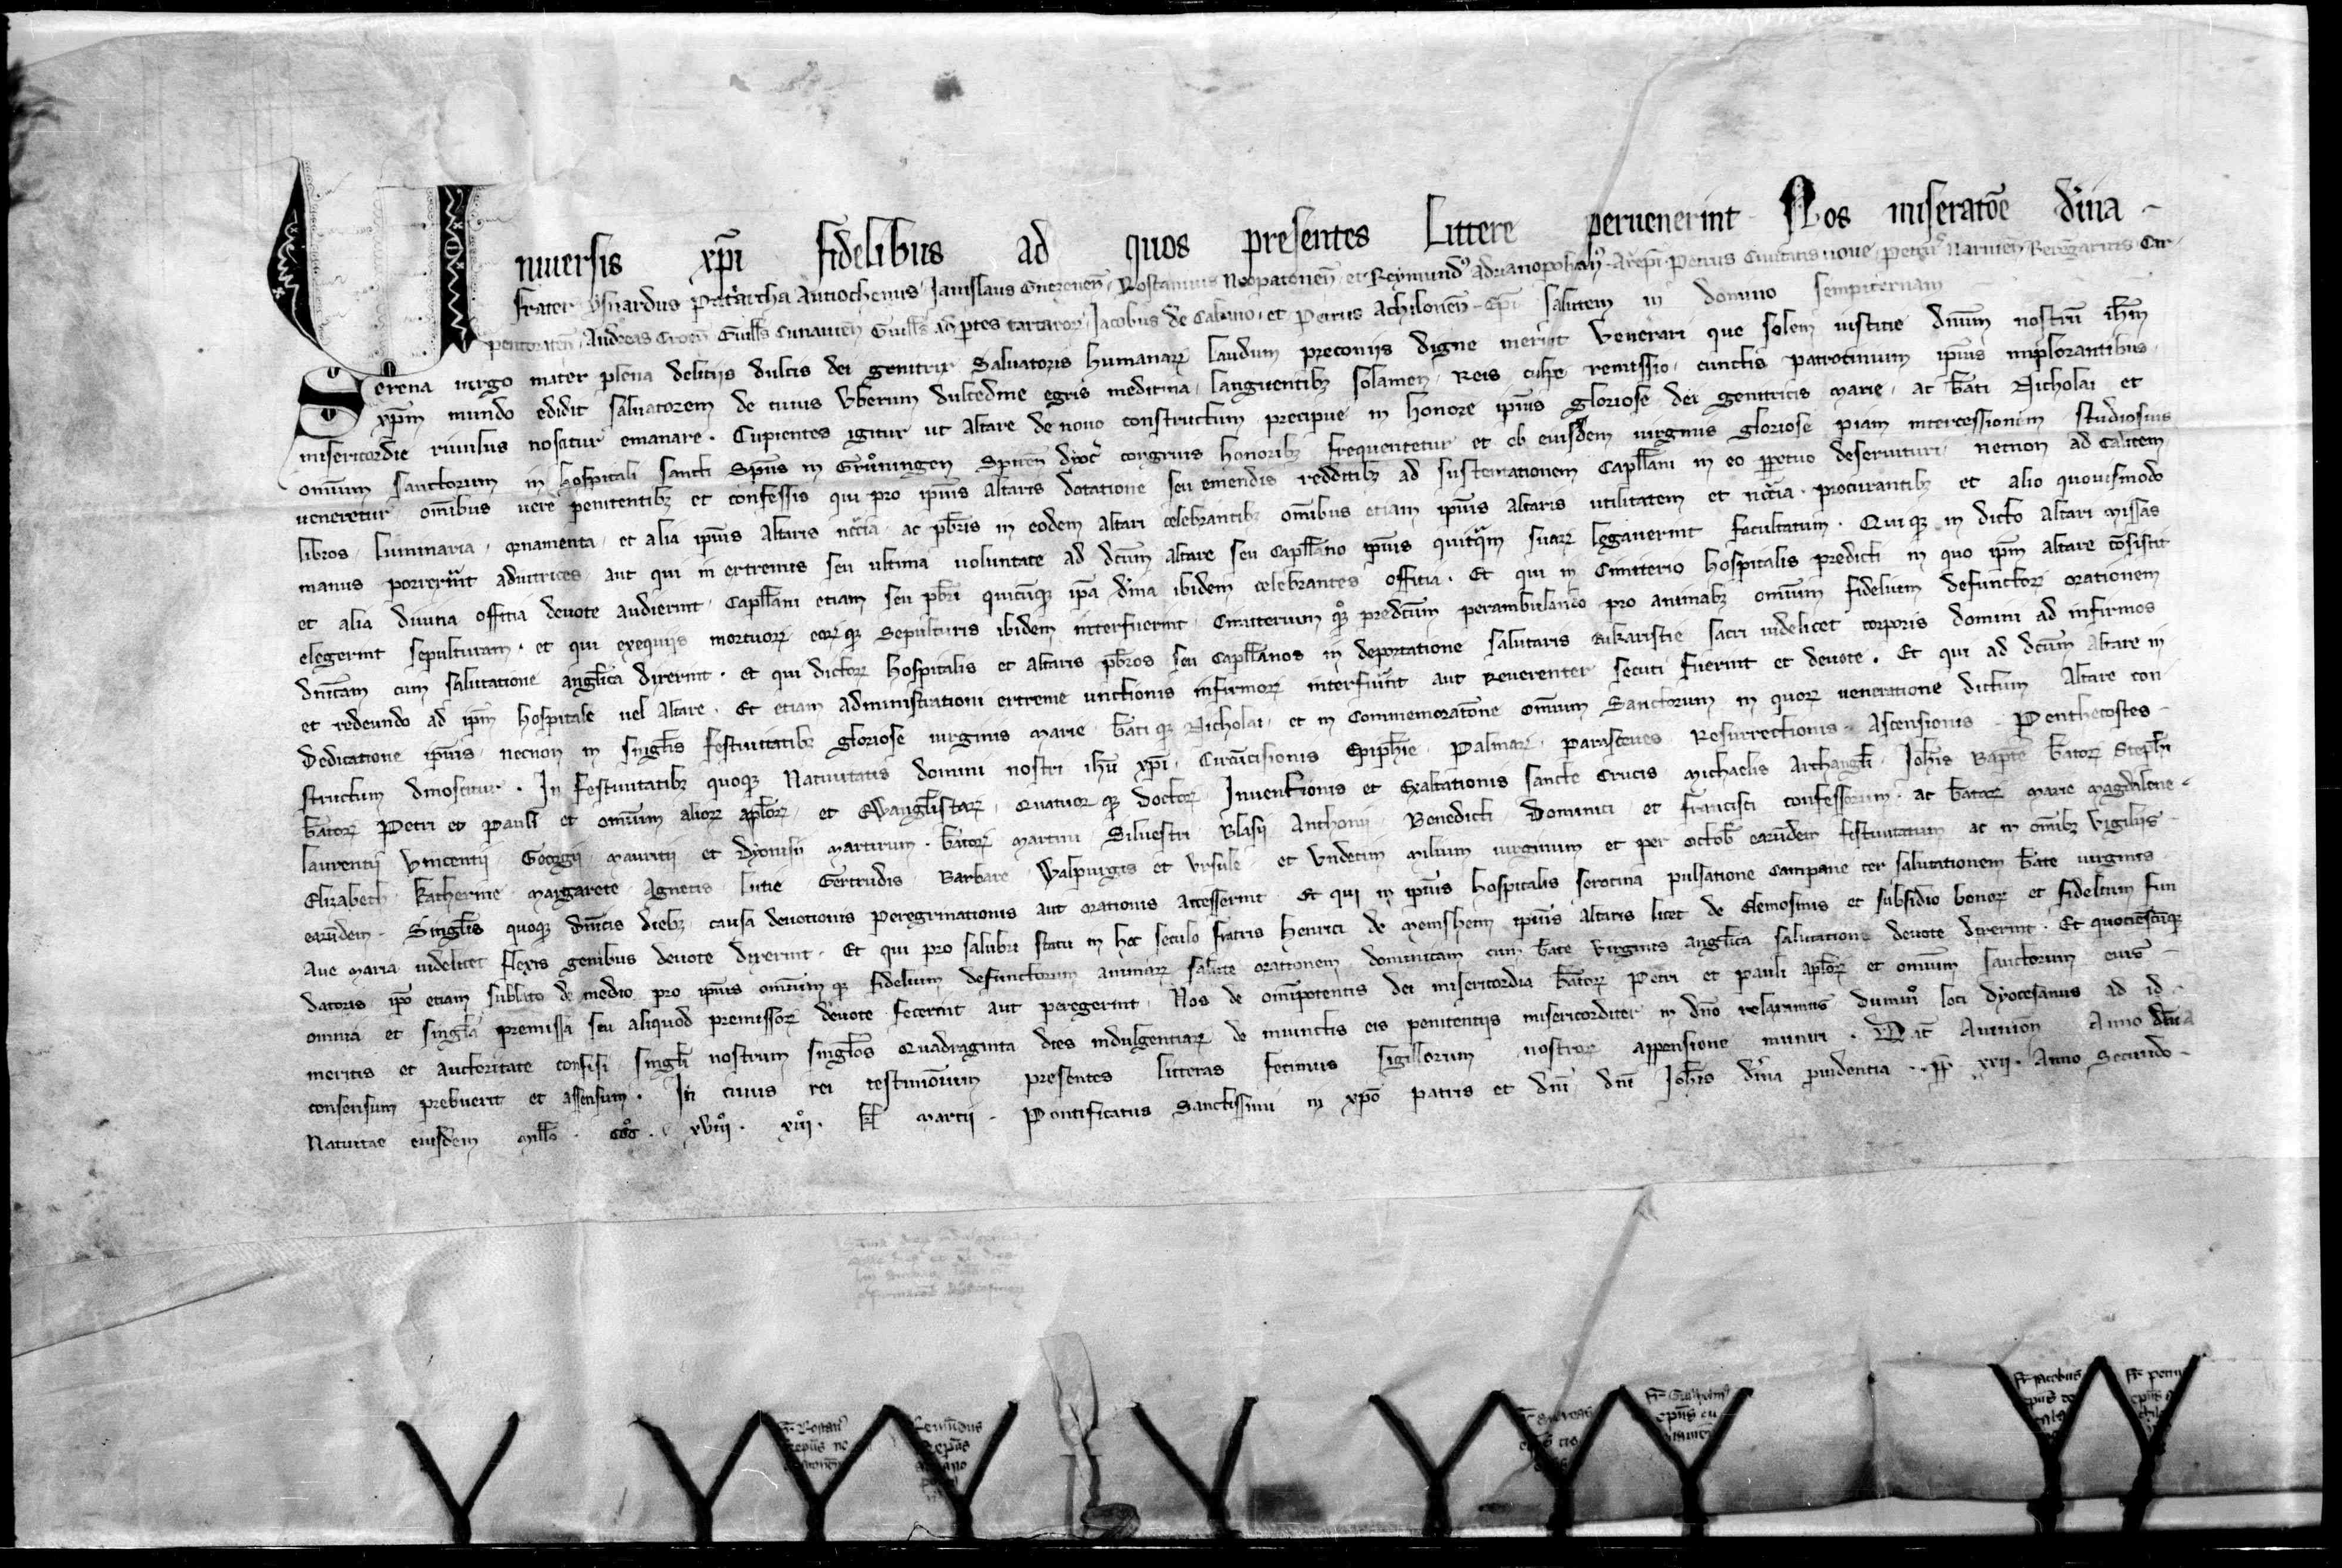 Uniuersis xp̄i fidelibus ad quos presentes Littere peruenerint Nos miseratōe diuina
Frater ysnardus Pat'archa Antiochenus Ianislaus Gneznen̄ Rostannus Neopatonen̄ et Reymundꝰ adrianopolitanꝰ Ar̄epi Petrus Ciuitatis noue Petrꝰ Narnien̄ Berengarius Car
pentoraten̄ Andreas Croen̄ Guill's Cunauien̄ Guill's ad p̄tes tartaroꝝ Iacobus de Cabano et Petrus Achilonen̄ Ep̄i salutem in domino sempiternam
Serena uirgo mater plena delitiis dulcis dei genitrix Saluatoris humanaꝝ laudum preconiis digne merȋt Venerari que solem iustitie dn̄um nostrū ih̄m
xp̄m mundo edidit saluatorem de cuius Vberum dulcedine egris medicina Languentibꝫ solamen Reis culpe remissio cunctis patrocinium ip̄ius implorantibus
misericordie riuulus noscitur emanare . Cupientes igitur ut Altare de nouo constructum precipue in honore ip̄ius gloriose dei genitricis Marie ac b̄ati Nicholai et
om̄ium sanctorum in hospitali sancti Sp̄us in Grůningen Spiren̄ dyoc̄ congruis honoribꝫ frequentetur et ob eiusdem uirginis gloriose piam intercessionem studiosius
ueneretur om̄ibus uere penitentibꝫ et confessis qui pro ip̄ius altaris dotatione seu emendis redditibꝫ ad sustentationem Capll̄ani in eo p̱petuo deseruituri necnon ad Calicem
libros Luminaria ornamenta et alia ip̄ius altaris nc̄cia ac pb̄ris in eodem altari celebrantibꝫ om̄ibus etiam ip̄ius altaris utilitatem et nc̄cia procurantibꝫ et alio quouismodo
manus porrexer̄int adiutrices aut qui in extremis seu ultima uoluntate ad dc̄um altare seu Capll̄ano ip̄ius quicq̄m suaꝝ legauerint facultatum . Quiqꝫ in dicto altari missas
et alia diuina offitia deuote audierint Capll̄ani etiam seu pb̄ri quicūqꝫ ip̄a diuina ibidem celebrantes offitia . Et qui in Cimiterio hospitalis predicti in quo ip̄m altare cōsistit
elegerint sepulturam . et qui exequiis mortuoꝝ eoꝝqꝫ Sepulturis ibidem interfuerint Cimiterium qꝫ predc̄um perambulando pro animabꝫ om̄ium fidelium defunctoꝝ orationem
dn̄icam cum salutatione angl̄ica dixerint . Et qui dictoꝝ hospitalis et altaris pb̄ros seu Capll̄anos in deportatione salutaris eukaristie sacri uidelicet corporis domini ad infirmos
et redeundo ad ip̄m hospitale uel altare . Et etiam administrationi extreme unctionis infirmoꝝ interfuer̄int aut Reuerenter secuti fuerint et deuote . Et qui ad dc̄um Altare in
Dedicatione ip̄ius necnon in singl̄is festiuitatibꝫ gloriose uirginis Marie b̄atiqꝫ Nicholai et in Commemoratōne om̄ium Sanctorum in quoꝝ ueneratione dictum Altare con
structum dinoscitur . In festiuitatibꝫ quoqꝫ Natiuitatis domini nostri ih̄u xp̄i Circūcisionis Epiph̄ie Palmaꝝ Parasceues Resurrectionis Ascensionis Penthecostes
b̄atoꝝ Petri et Pauli et om̄ium alioꝝ apl̄oꝝ et Ewangl̄istaꝝ Quatuorqꝫ doctoꝝ Inuentionis et Exaltationis sancte Crucis Michaelis Archangl̄i Ioh̄is Bap̄te b̄atoꝝ Steph̄i
Laurentii Vincentii Georgii Mauritii et Dyonisii Martirum . b̄atoꝝ Martini Siluestri Blasii Anthonii Benedicti Dominici et Francisci confessorum . ac b̄ataꝝ Marie Magdalene
Elizabeth Katherine Margarete Agnetis Lucie Gertrudis Barbare Walpurgis et Vrsule et Vndecim milium uirginum et per octob̄ earūdem festiuitatum ac in om̄ibꝫ Vigiliis
earūdem . Singl̄is quoqꝫ dn̄icis diebꝫ causa deuotionis peregrinationis aut orationis accesserint Et qui in ip̄ius hospitalis serotina pulsatione Campane ter salutationem b̄ate uirginis
Aue Maria uidelicet flexis genibus deuote dixerint . Et qui pro salubri statu in hoc seculo fratris Henrici de Meinshein ip̄ius altaris licet de Elemosinis et subsidio bonoꝝ et fidelium fun
datoris ip̄o etiam sublato de medio pro ip̄ius om̄iumqꝫ fidelium defunctorum animaꝝ salute orationem dominicam cum b̄ate Virginis angl̄ica salutatione deuote dixerint . Et quocienscūqꝫ
omnia et singl̄a premissa seu aliquod premissoꝝ deuote fecerint aut peregerint . Nos de om̄ipotentis dei misericordia b̄atoꝝ Petri et Pauli apl̄oꝝ et om̄ium sanctorum eius
meritis et auctoritate confisi singl̄i nostrum singl̄os Quadraginta dies indulgentiaꝝ de iniunctis eis penitentiis misericorditer in dn̄o relaxamus dummͦ loci dyocesanus ad id
consensum prebuerit et assensum . In cuius rei testimōnium presentes litteras fecimus sigillorum nostroꝝ appensione muniri . Dat̄ Auinion̄ Anno dn̄ica
Natiuitāe eiusdem mill̄o . CCCͦ . xviiiͦ . xiii . kl̄ Martii . Pontificatus Sanctissimi in xp̄o patris et dn̄i dn̄i Ioh̄is diuina p̱uidentia . p̄p̄ xxii . Anno Secundo
Fr̄ Rostanꝰ
Remūdus
Fr̄ Andreas
Fr̄ Guilhelmꝰ
ep̄us cu
Fr̄ Iacobus
ep̄us de
Fr̄ petru